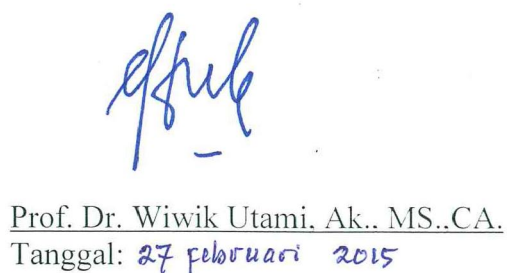 Prof. Dr. Wiwik Utami, Ak., MS.,CA.
Tanggal: 27 februari 2015